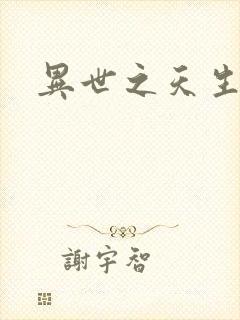 異世之天生
謝宇智